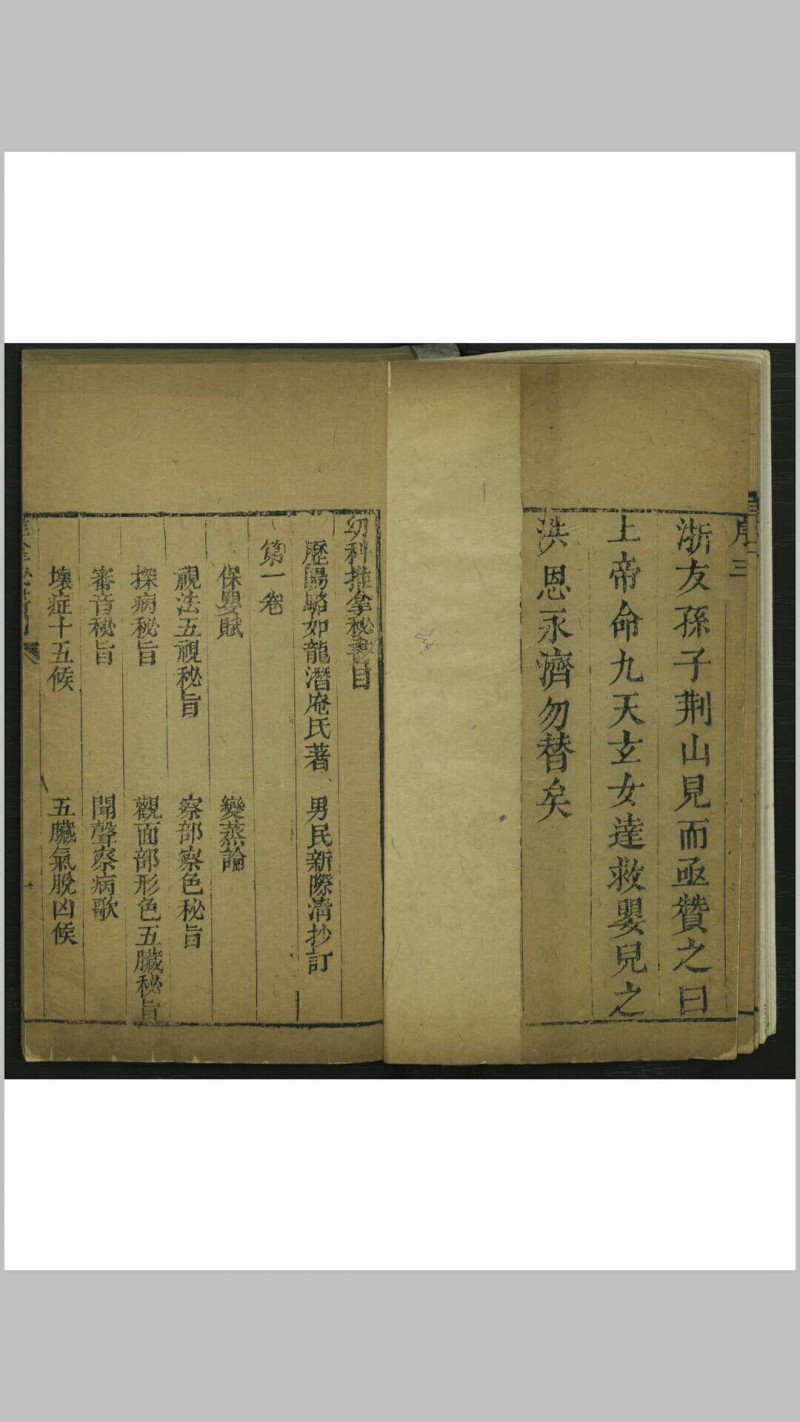 序 三
浙友孫子荆山見而亟贊之曰
上帝命九天玄女達救嬰兒之
洪恩永濟勿替矣
幼科推拿秘書目
歷陽駱如龍潛庵氏著 男民新際淸抄訂
第一卷
保嬰賦 變蒸論
視法五視秘旨 察部察色秘旨
探病秘旨 觀面部形色五臟秘旨
審音秘旨 聞聲察病歌
壞症十五候 五臟氣脫凶候